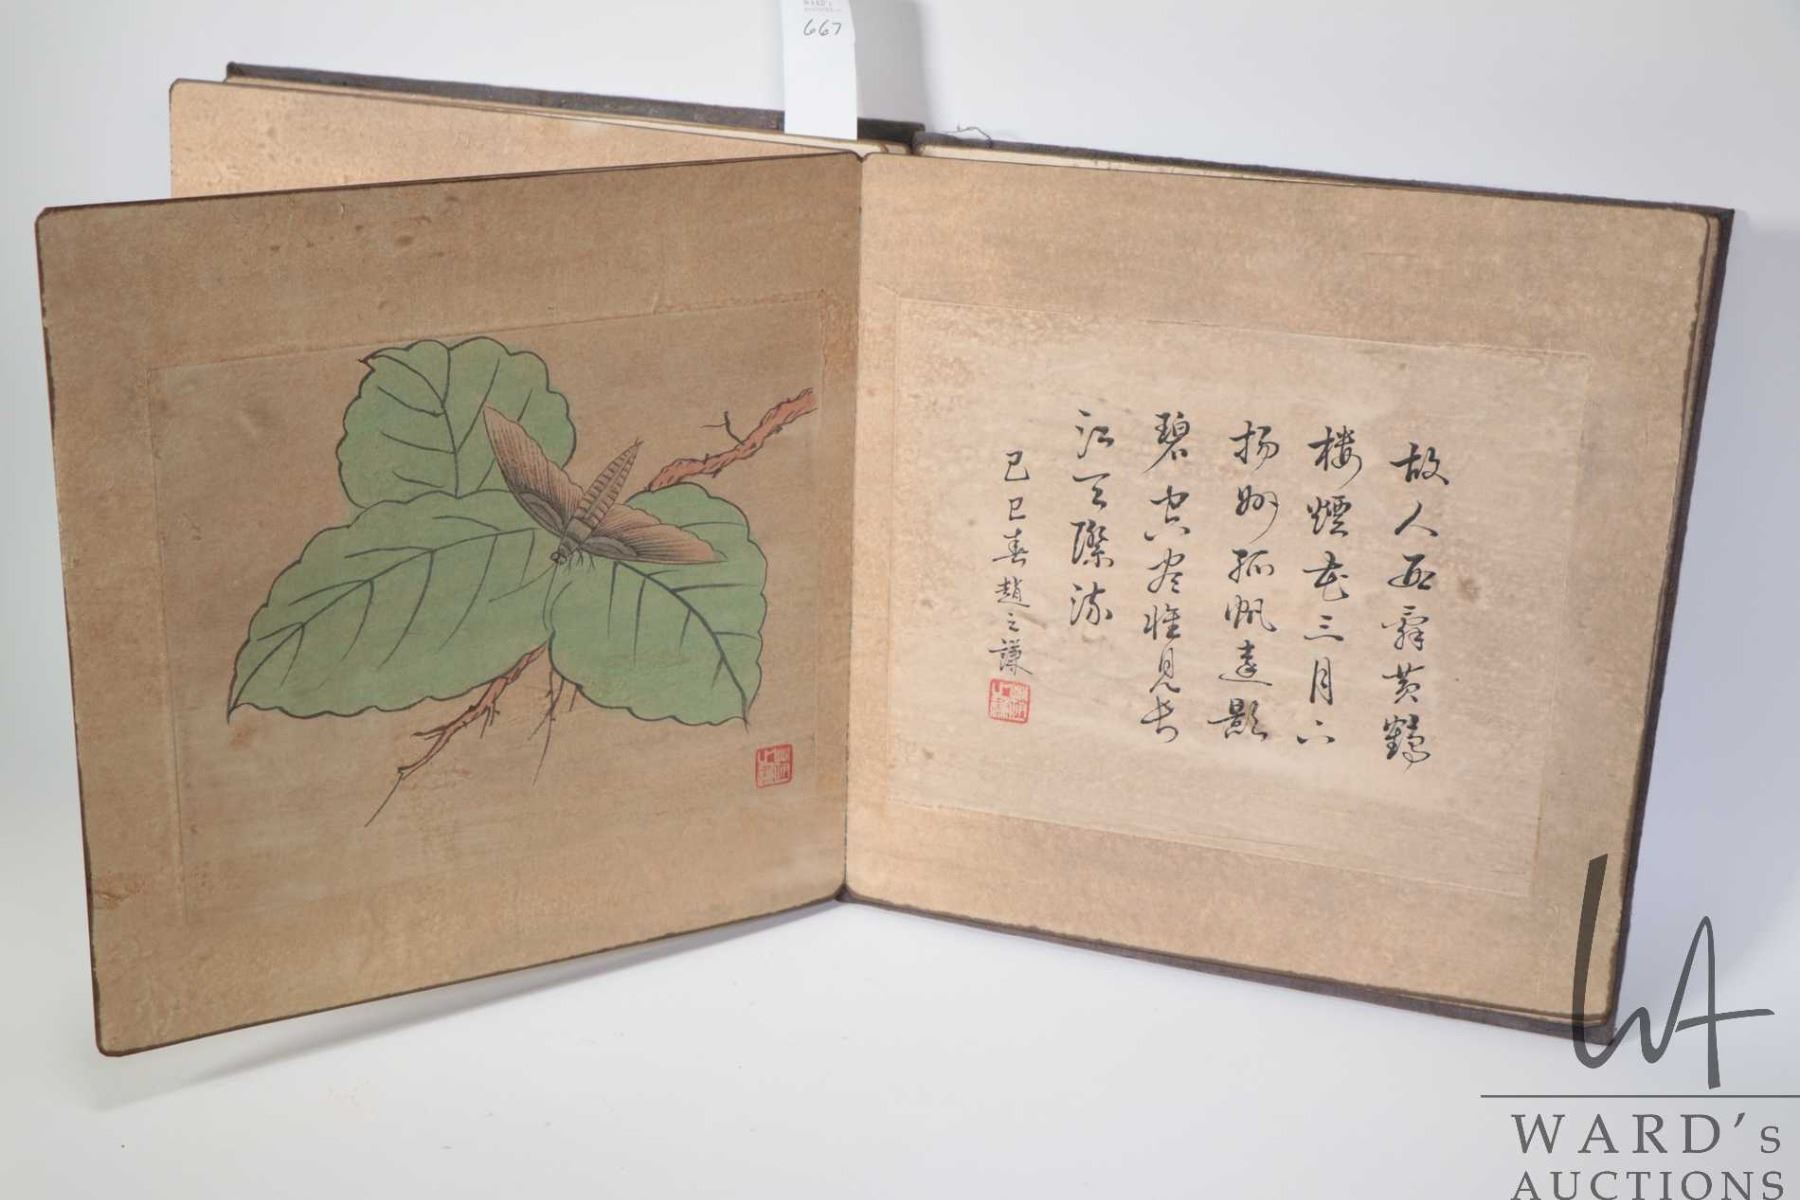 WARD's
AUCTIONS
667
故人西辭黃鶴
樓煙花三月下
揚州孤帆遠影
碧空盡惟見長
江天際流
己巳春趙之謙
WA
WARD's
AUCTIONS